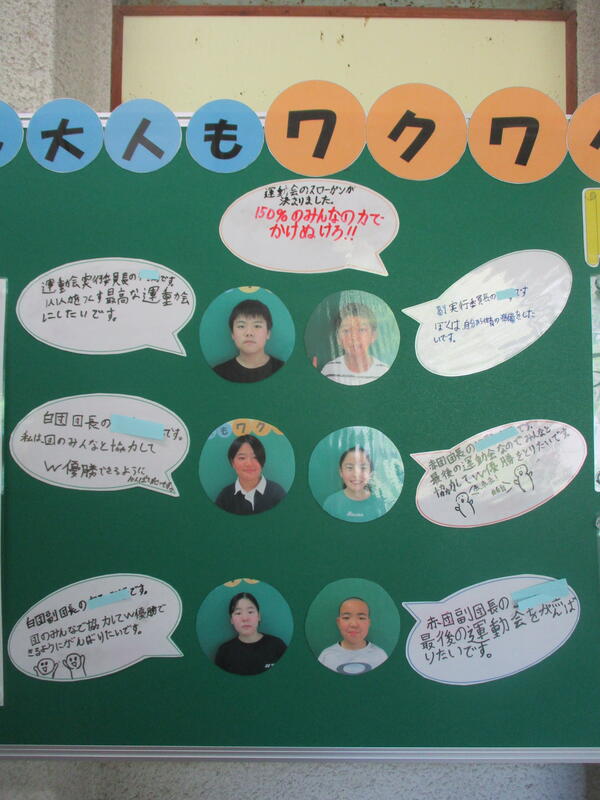 大人もワクワ
運動会のスローガンが
決まりました。
150%のみんなの力で
かけぬけろ!!
運動会実行委員長の です
最高な運動会
にしたいです。
副実行委員長の です
ぼくは
いです。
白団団長の です。
私は、団のみんなと協力して
W優勝できるように
がんばりたいです。
赤団団長の
最後の運動会なのでみんなと
協力してW優勝をとりたいです。
白団副団長の です。
団のみんなで協力してW優勝で
きるようにがんばりたいです。
赤団副団長の
最後の運動会をがんば
りたいです。